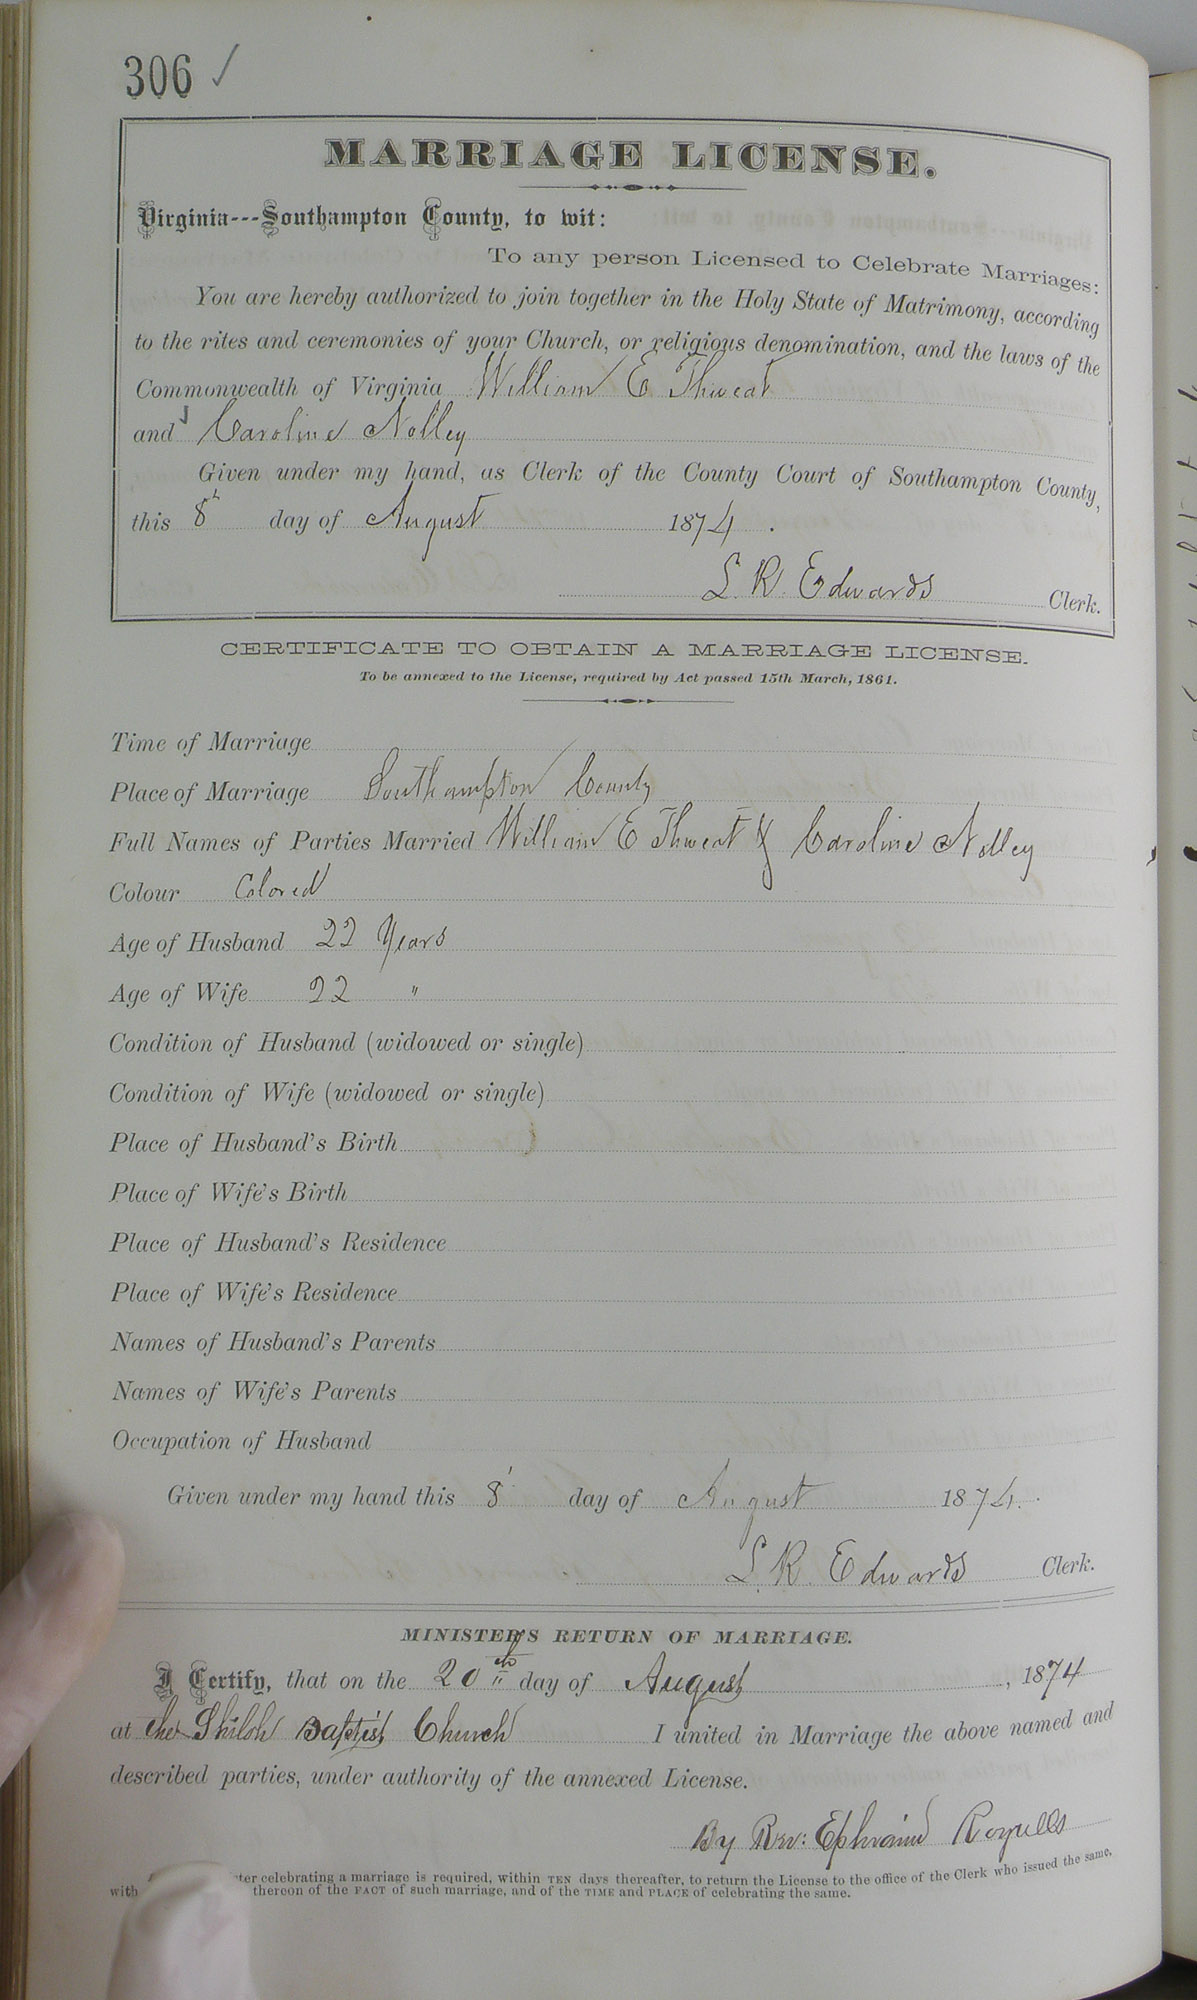 306 ✓
MARRIAGE LICENSE.
Virginia---Southampton County, to wit:
To any person Licensed to Celebrate Marriages:
You are hereby authorized to join together in the Holy State of Matrimony, according
to the rites and ceremonies of your Church, or religious denomination, and the laws of the
Commonwealth of Virginia William E Thweat
and Caroline Nolley
Given under my hand, as Clerk of the County Court of Southampton County,
this 8th day of August 1874.
L. R. Edwards Clerk.
CERTIFICATE TO OBTAIN A MARRIAGE LICENSE.
To be annexed to the License, required by Act passed 15th March, 1861.
Time of Marriage
Place of Marriage Southampton County
Full Names of Parties Married William E Thweat & Caroline Nolley
Colour Colored
Age of Husband 22 Years
Age of Wife 22 "
Condition of Husband (widowed or single)
Condition of Wife (widowed or single)
Place of Husband's Birth
Place of Wife's Birth
Place of Husband's Residence
Place of Wife's Residence
Names of Husband's Parents
Names of Wife's Parents
Occupation of Husband
Given under my hand this 8' day of August 1874.
L. R. Edwards Clerk.
MINISTER'S RETURN OF MARRIAGE.
I Certify, that on the 20th day of August, 1874
at the Shiloh Baptist Church I united in Marriage the above named and
described parties, under authority of the annexed License.
By Rev: Ephraim
celebrating a marriage is required, within TEN days thereafter, to return the License to the office of the Clerk who issued the same,
with thereon of the FACT of such marriage, and of the TIME and PLACE of celebrating the same.